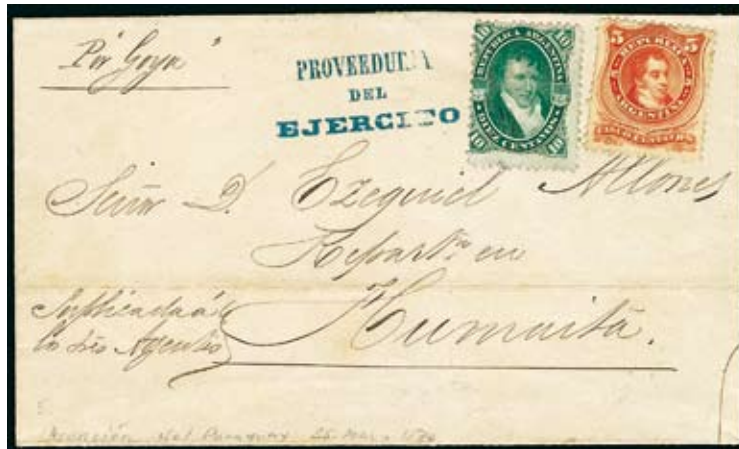 Por Goya
PROVEEDURIA
DEL
EJERCITO
10 REPUBLICA ARGENTINA 10
10 DIEZ CENTAVOS 10
5 REPUBLICA 5
ARGENTINA
CINCO CENTAVOS
Señor D. Ezequiel
en
Humaitá.
Suplicada á
los Sres Agentes
Asunción del Paraguay 25